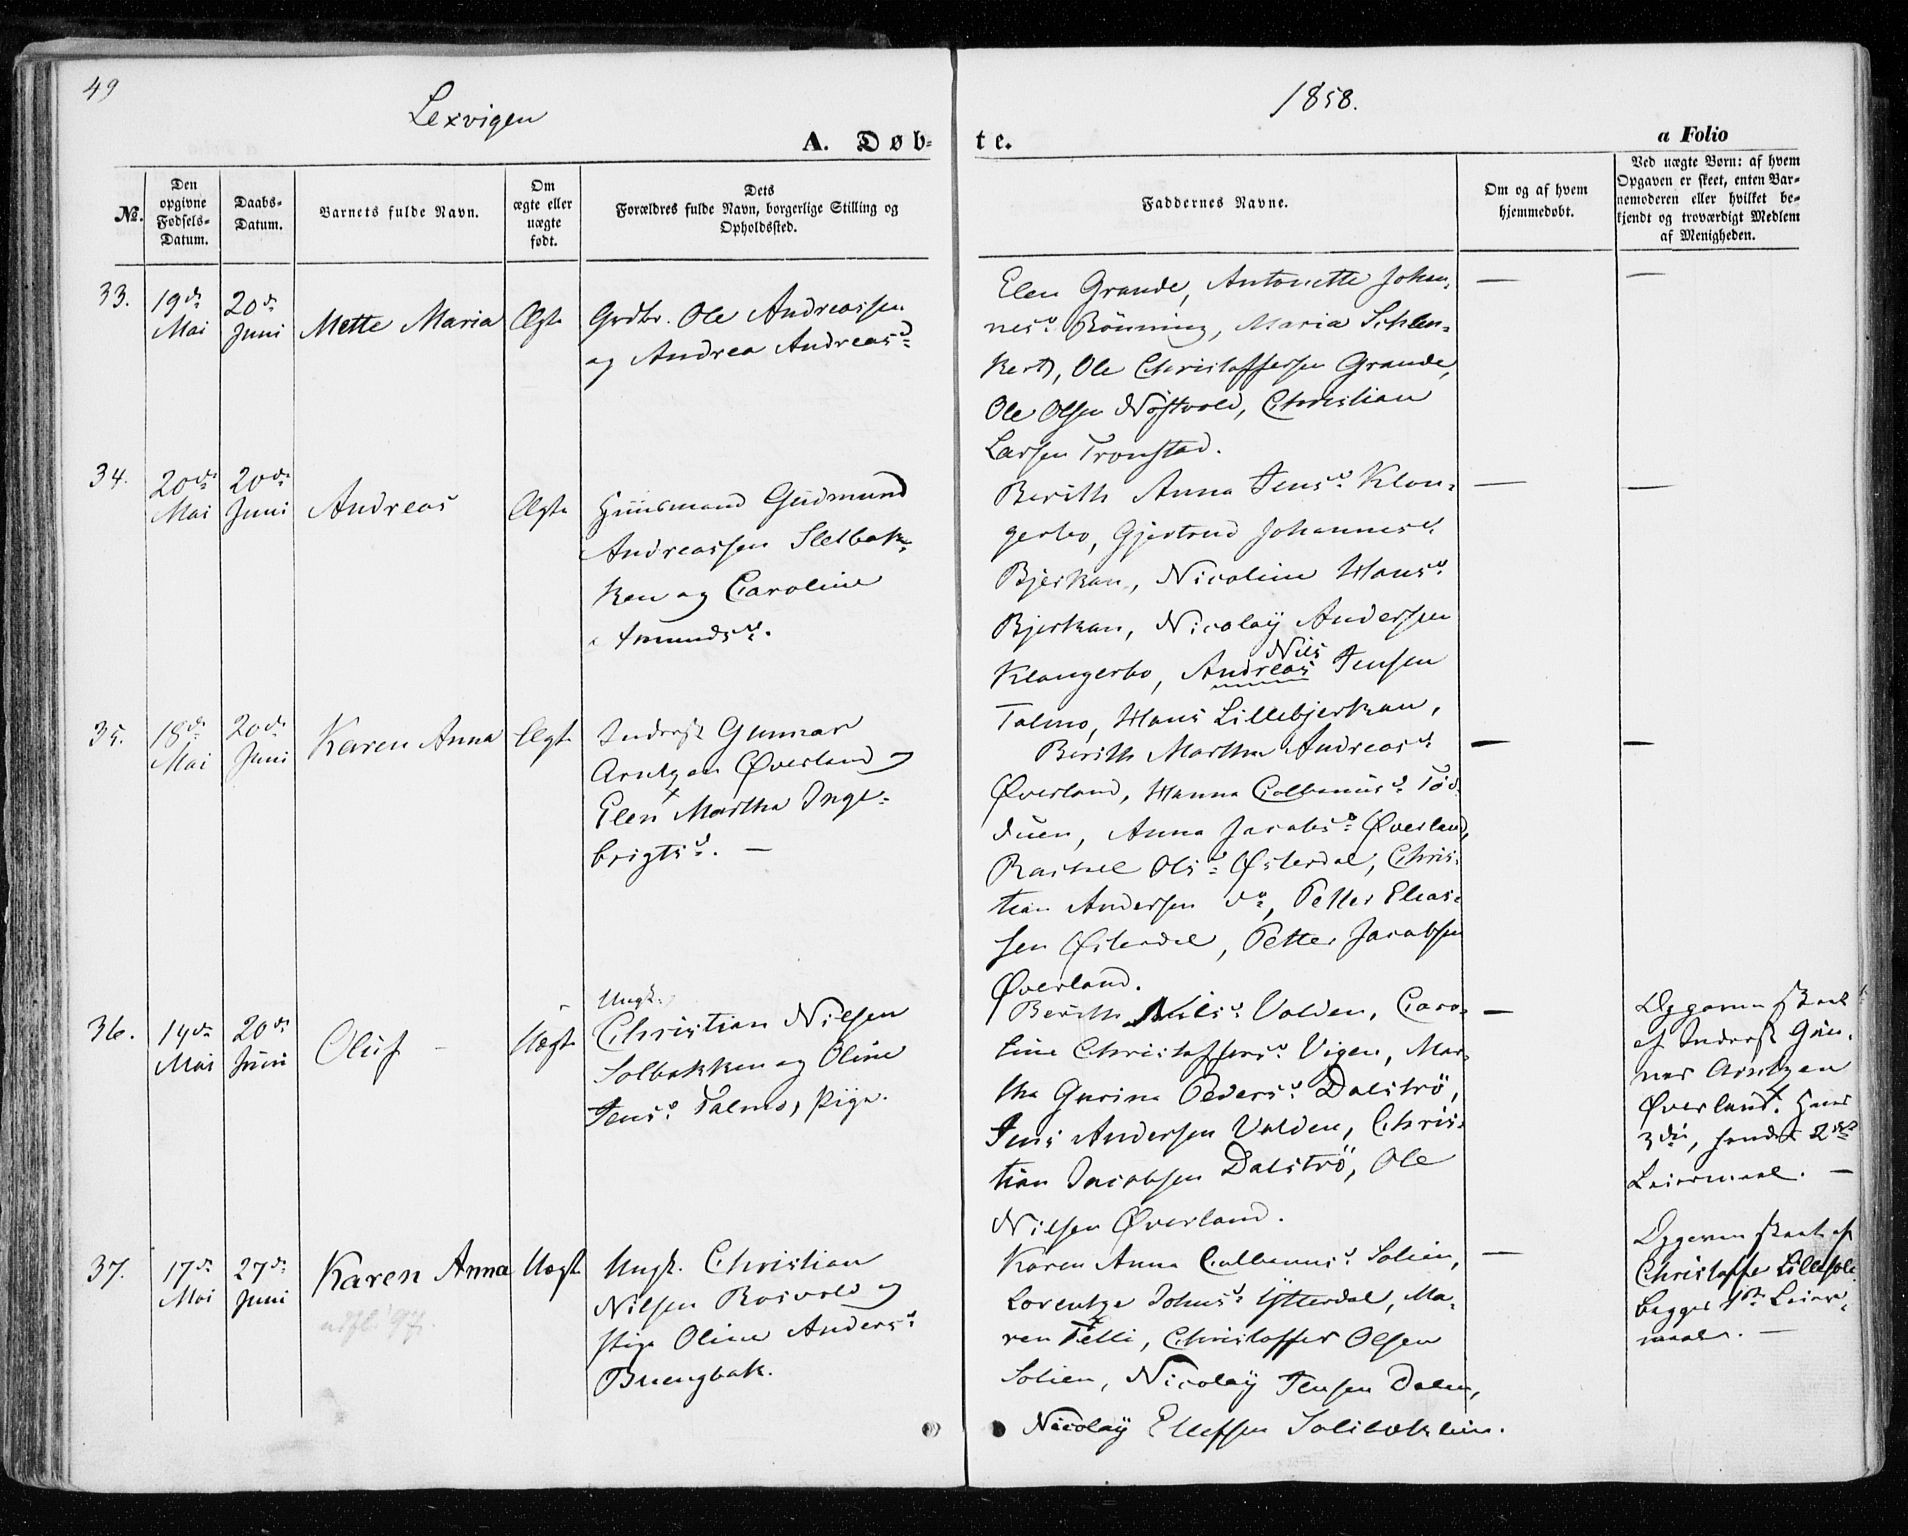 49
Lexvigen
1858.
A. Døb-
te.
a Folio
No.
Den
opgivne
Fødsels-
Datum.
Daabs-
Datum.
Barnets fulde Navn.
Om
ægte eller
uægte
født.
Dets
Forældres fulde Navn, borgerlige Stilling og
Opholdssted.
Faddernes Navne.
Om og af hvem
hjemmedøbt.
Ved uægte Børn: af hvem
Opgaven er skeet, enten Bar-
nemoderen eller hvilket be-
kjendt og troværdigt Medlem
af Menigheden.
33.
19de
Mai
20de
Juni
Mette Maria
Ægte
Grdbr. Ole Andreassen
og Andrea Andreasd.
Elen Grande, Antonette Johan-
nesd. Rönning, Maria Schlen-
kert, Ole Christoffersen Grande,
Ole Olsen Nøstvold, Christian
Larsen Tronstad.
—
—
34.
20de
Mai
20de
Juni
Andreas
Ægte
Huusmand Gudmund
Andreassen Sletbak-
ken og Caroline
Amundsd.
Berith Anna Jensd. Klan-
gerbo, Gjertrud Johannesd.
Bjerkan, Nicoline Hansd.
Bjerkan, Nicolaÿ Andersen
Nils
Klangerbo, Andreas Jensen
Talmo, Hans Lillebjerkan,
—
—
35.
18de
Mai
20de
Juni
Karen Anna
Ægte
Inderst Gunnar
Arntzen Øverland og
Elen Martha Inge-
brigtsd. —
Berith Martha Andreasd.
Øverland, Hanna Colbanusd. Tød-
duen, Anna Jacobsd. Øverland,
Rachel Olsd. Østerdal, Chris-
tian Andersen do, Petter Elias-
sen Østerdal, Petter Jacobsen
Øverland.
—
—
36.
14de
Mai
20de
Juni
Oluf
Uægte
Ungk.
Christian Nilsen
Solbakken og Oline
Jensd. Talmo, Pige.
Berith Nilsd. Valden, Caro-
line Christoffersd. Vigen, Mar-
tha Gurina Pedersd. Dalströ,
Jens Andersen Valden, Chris-
tian Jacobsen Dalströ, Ole
Nilsen Øverland.
—
Opgaven skeet
af Inderst Gun-
nar Arntzen
Øverland. Hans
3die, hendes 2det
Leiermaal. —
37.
17de
Mai
27de
Juni
Karen Anna
Uægte
Ungk. Christian
Nilsen Rosvold og
Pige Oline Andersd.
Bruengbak.
Karen Anna Colbanusd. Solien,
Lorentze Johnsd. Ytterdal, Ma-
ren Telli, Christoffer Olsen
Solien, Nicolaÿ Jensen Dalen,
Nicolaÿ Ellefsen
—
Opgaven skeet af
Christoffer
begges 1ste Leier-
maal. —